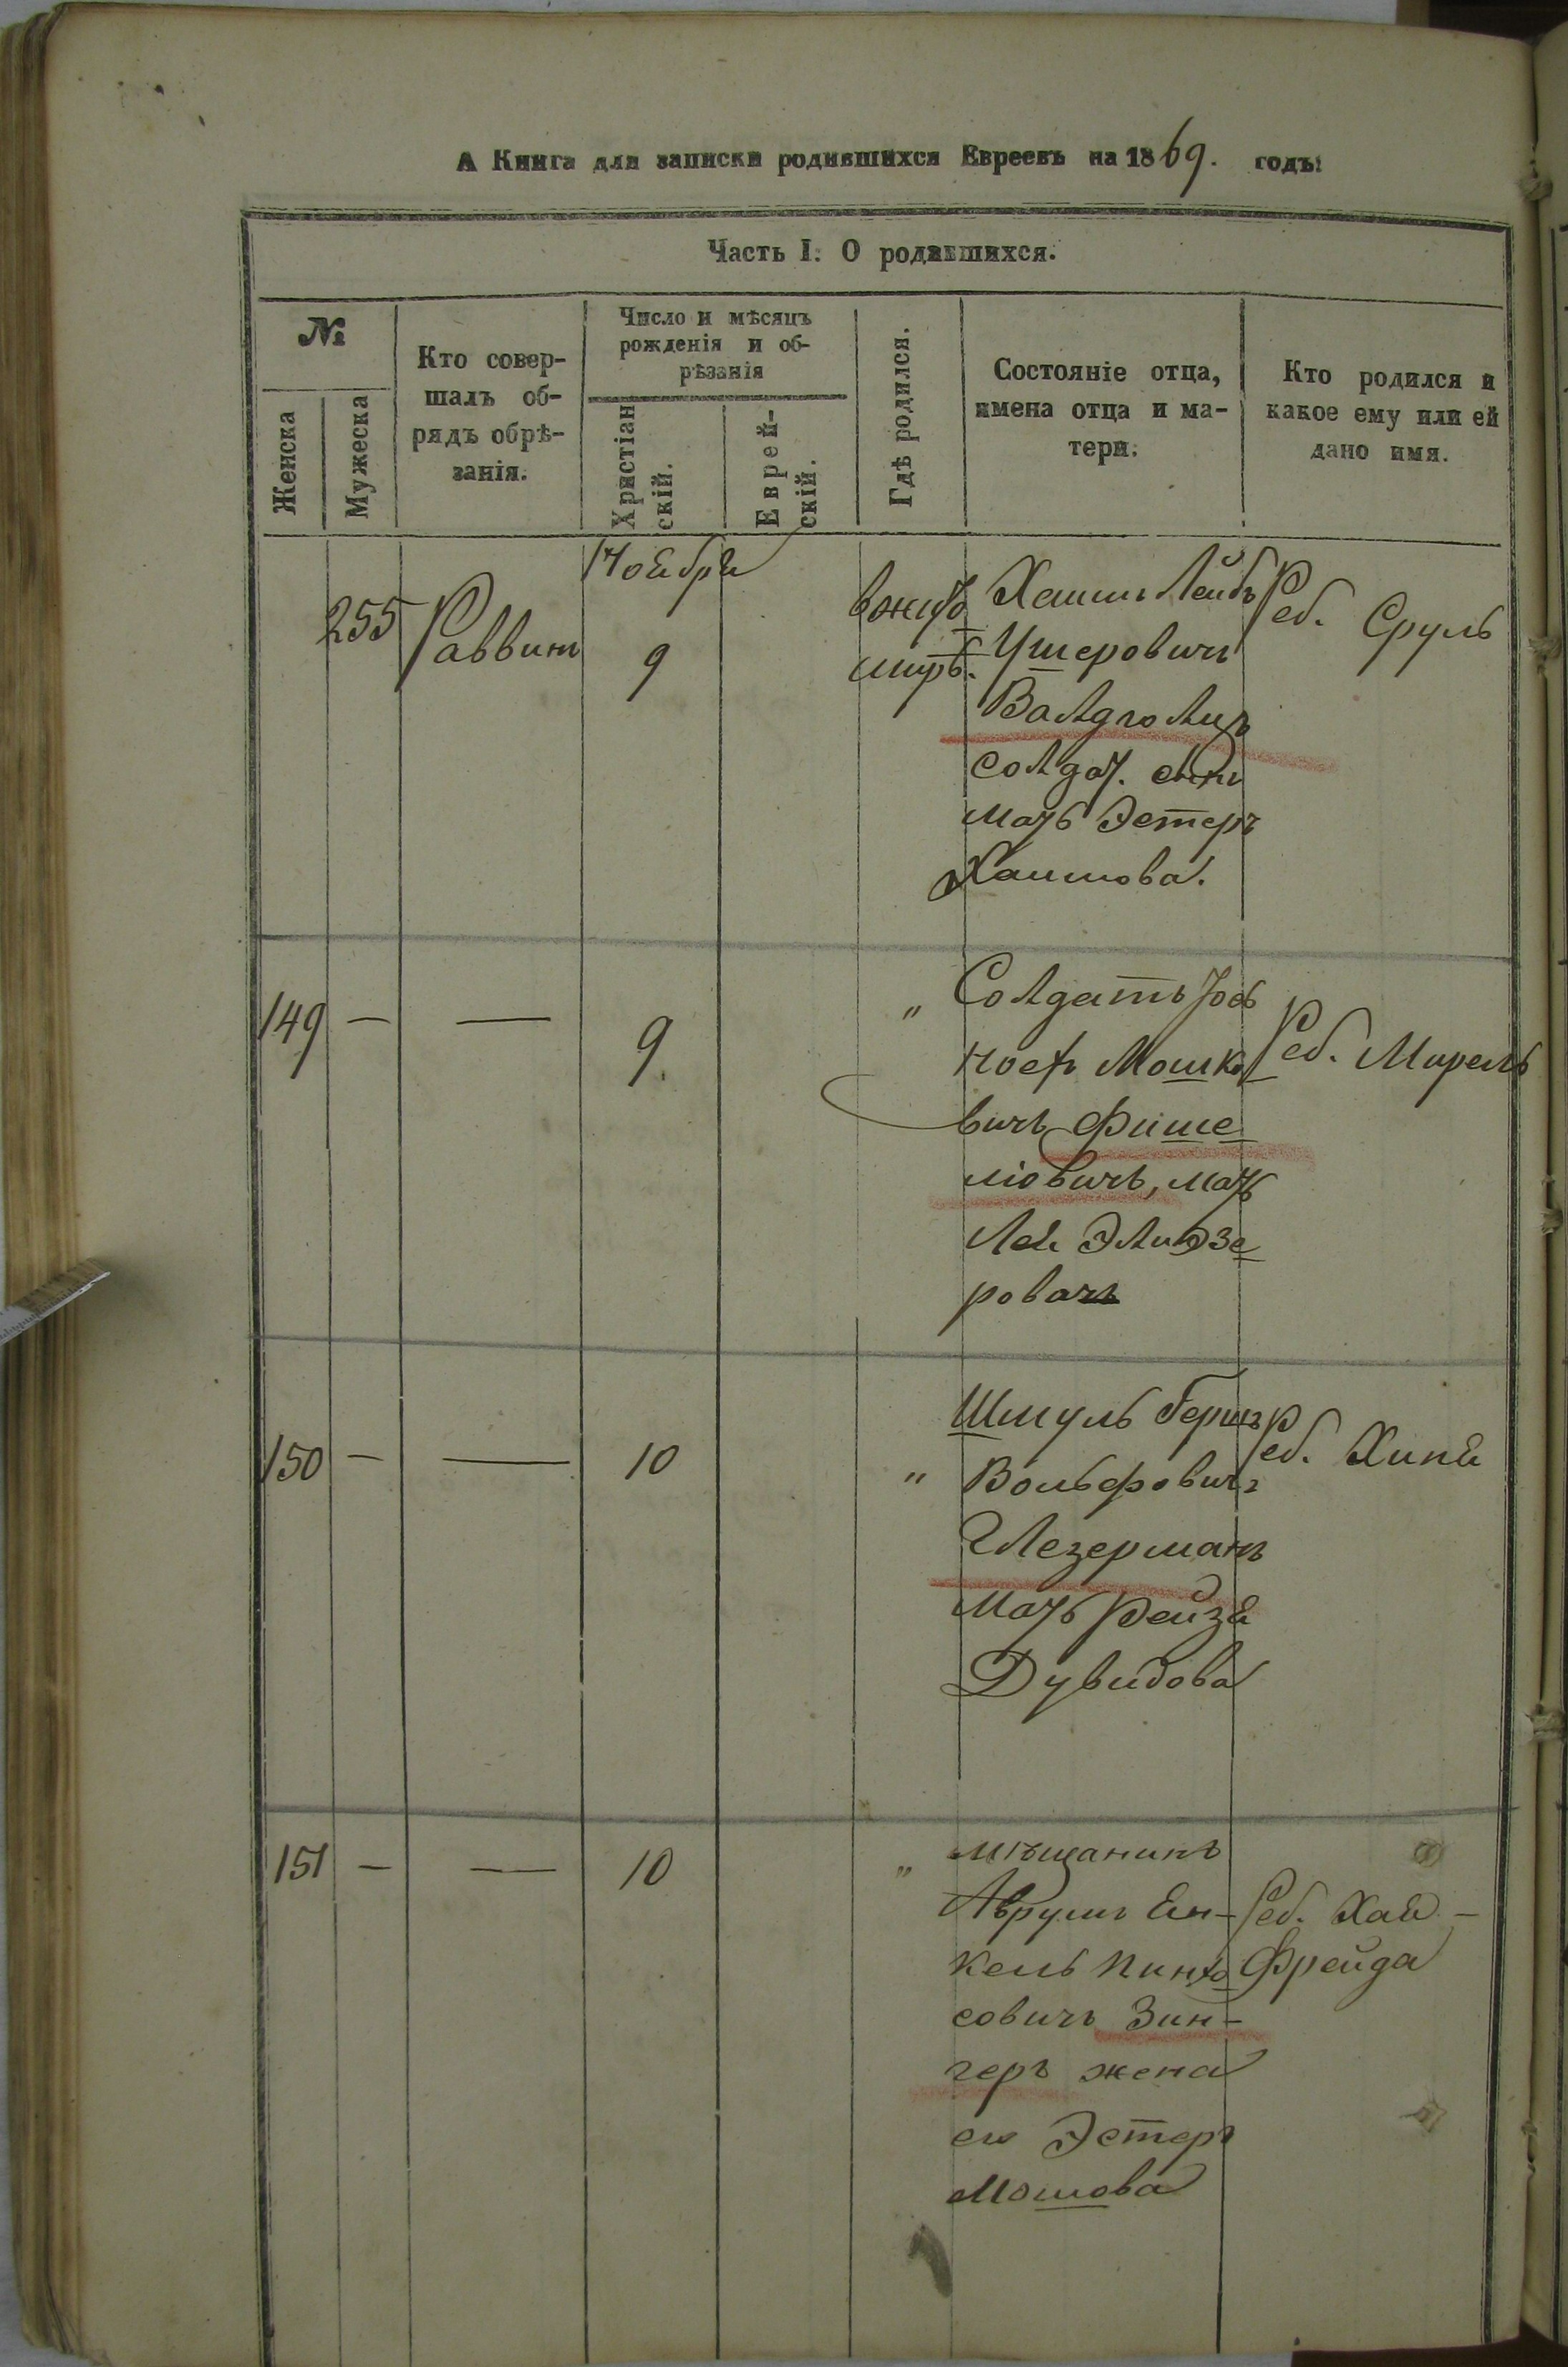 А Книга для записки родившихся Евреевъ на 1869. годъ:
Часть I. О родившихся.
№
Женска
Мужеска
Кто совер-
шалъ об-
рядъ обрѣ-
занія.
Число и мѣсяцъ
рожденія и об-
рѣзанія
Христіан
скій.
Еврей-
скій.
Гдѣ родился.
Состояніе отца,
имена отца и ма-
тери.
Кто родился и
какое ему или ей
дано имя.
Ноября
255
Раввинъ
9
вжито
мирѣ.
Хаимъ Лейбъ
Ушеровичъ
Валдголцъ
солдат.
мать Эстеръ
Хаимова.
Реб. Сруль
149 — —
9.
"
Солдатъ
Мошко
вичъ Фише
ліовичъ, мать
Лея Элиозе
рова
Реб. Мирель
150 — —
10
"
Шмуль Гершъ
Вольфовичъ
Глезерманъ
мать Рейзя
Дувидова
Реб. Хипя
151 — —
10
"
мѣщанинъ
Аврумъ Ен-
кель Пинхо
совичъ Зин-
геръ жена
его Эстеръ
Мошова
Реб. Хая -
Фрейда